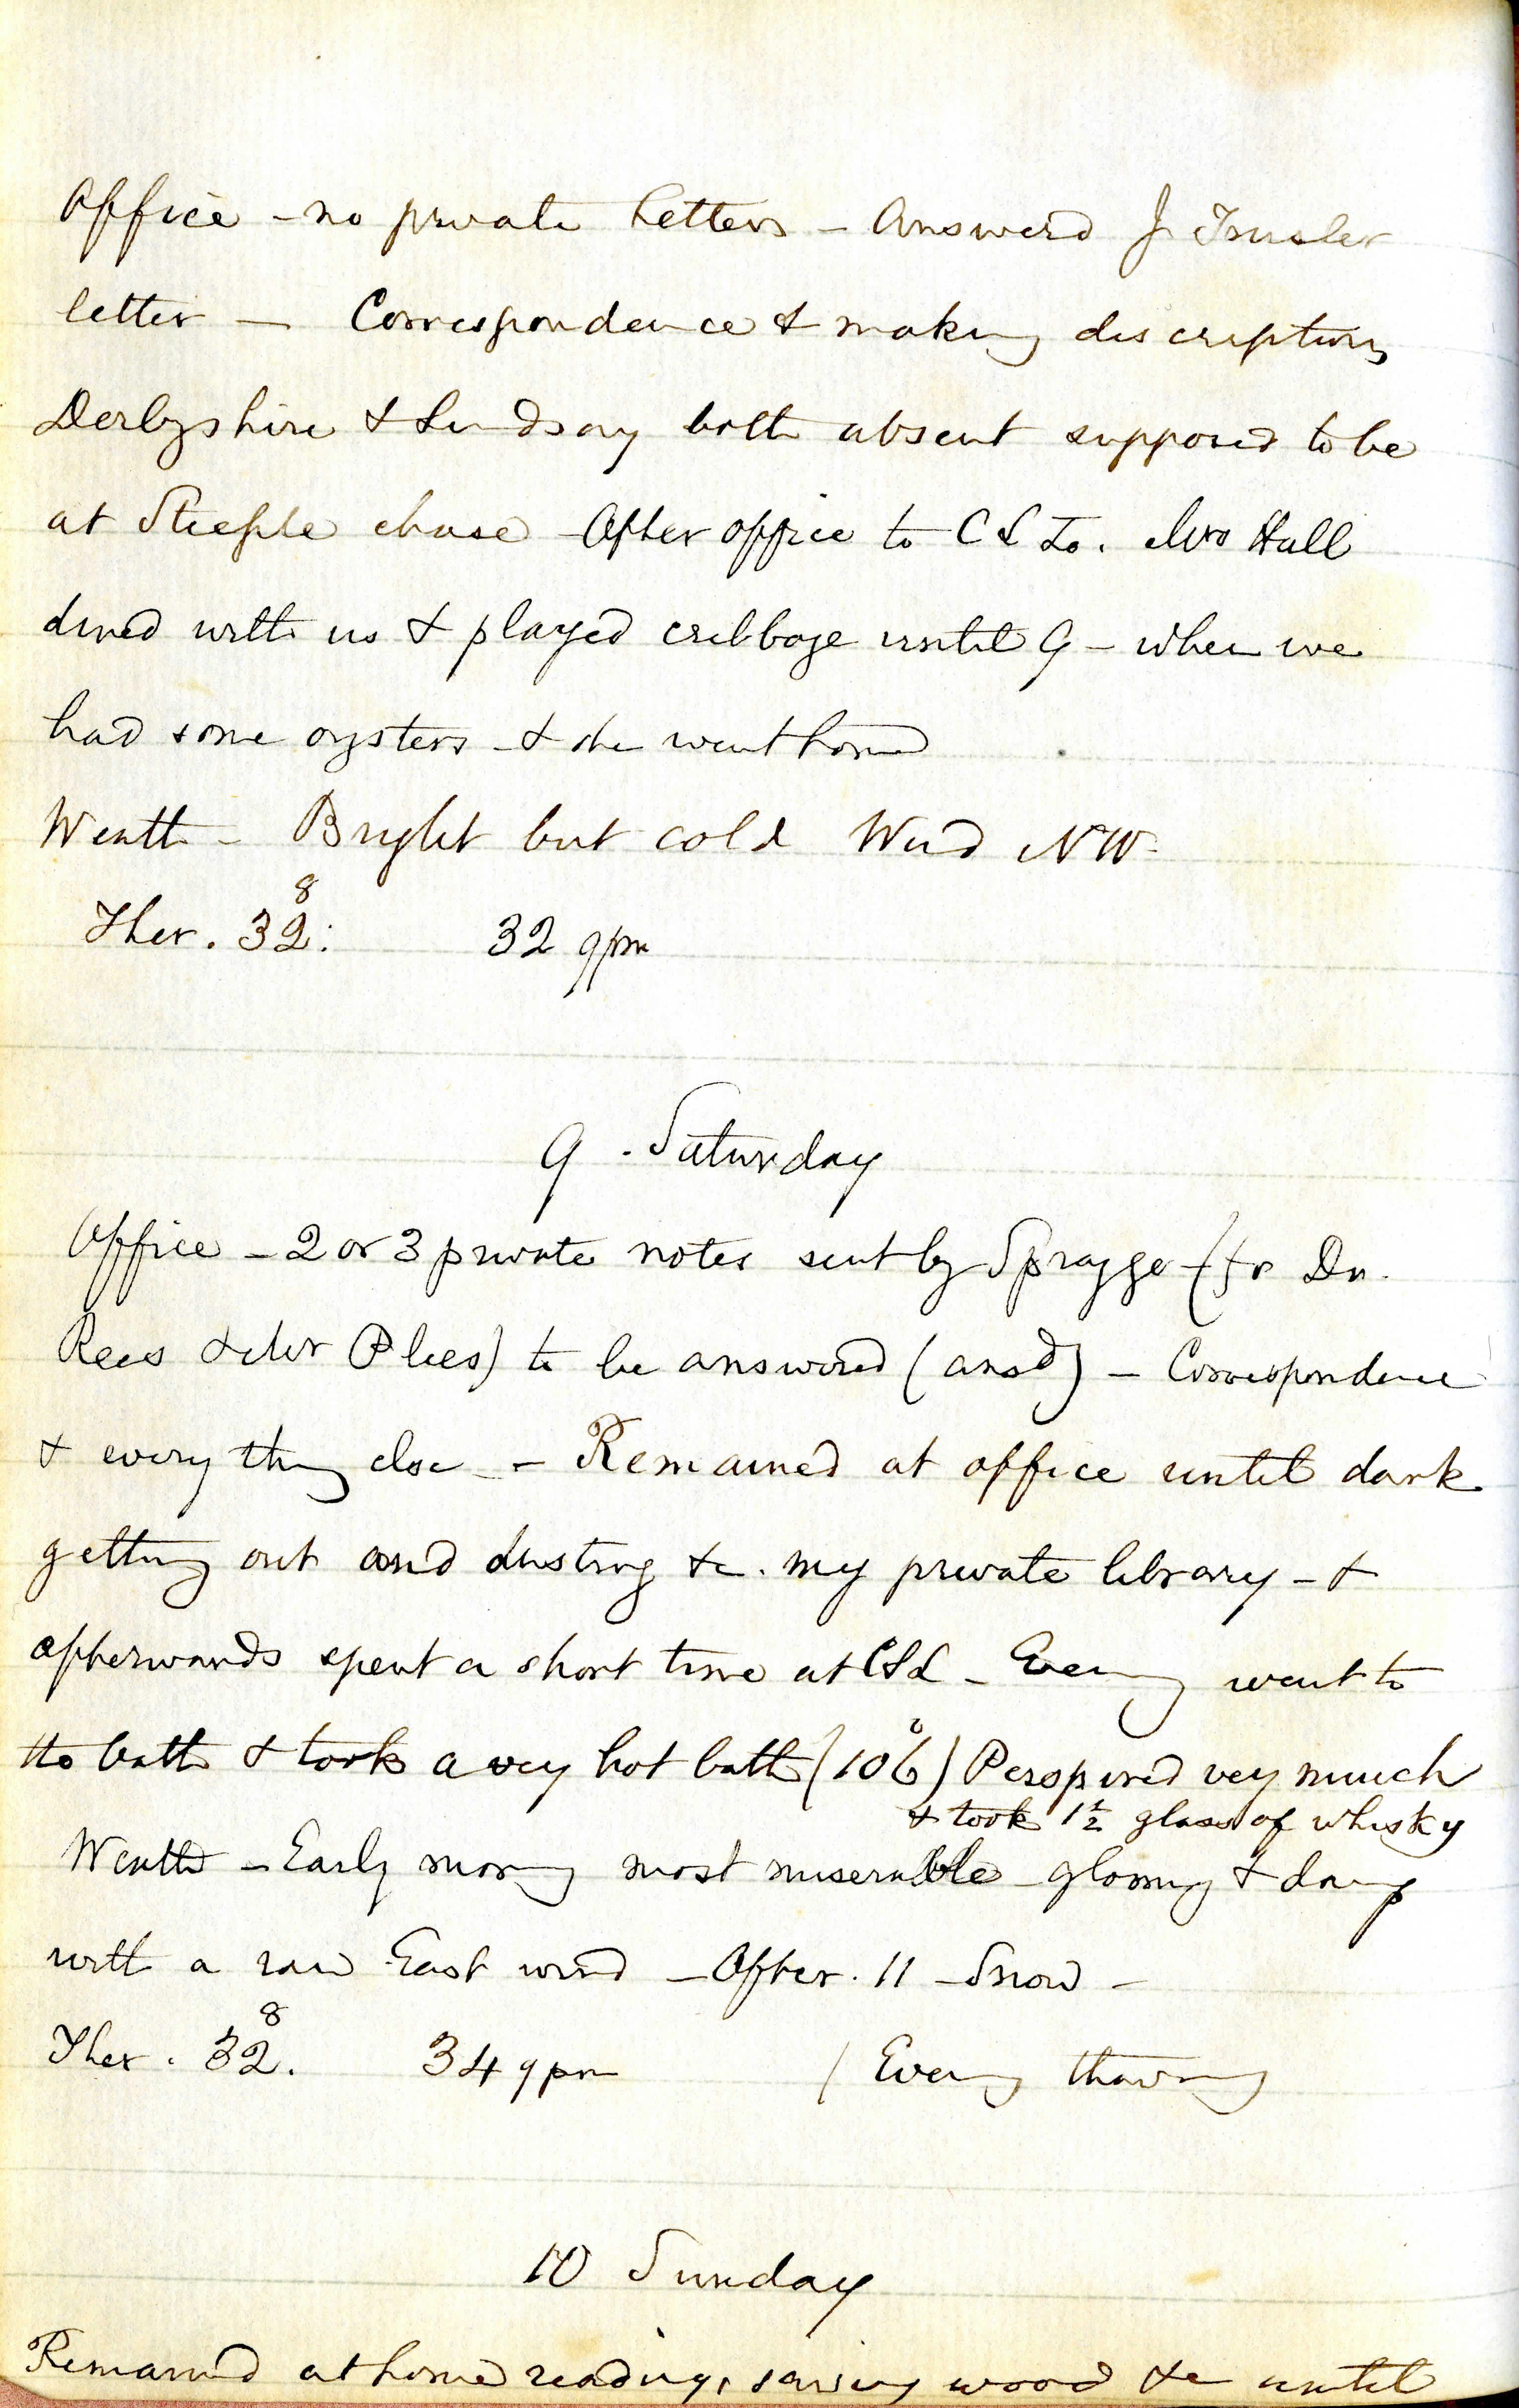 Office - no private letters - Answered J Trusler
letter - Correspondence & making descriptions
Derbyshire & Lindsay both absent supposed to be
at Steeple chase - After office to C L Lo. Mrs Hall
dined with us & played cribbage until 9 - when we
had some oysters - & she went home
Weath - Bright but cold Wind NW -
Ther. 32: 8 32 9pm
9 - Saturday
Office - 2 or 3 private notes sent by Spragge (fr Dr.
Rees & Mr Plees) to be answered (ansd) - Correspondence
& every thing else - Remained at office until dark
getting out and dusting &c. my private library - &
afterwards spent a short time at CLL - Evening went to
the bath & took a very hot bath (106°) Perspired very much
& took 1½ glass of whisky
Weath - Early morning most miserable - gloomy & damp
with a raw East wind - After 11 - Snow -
Ther. 32. 8 34 9pm / Evening thawing
10 Sunday
Remained at home reading, sawing wood &c until